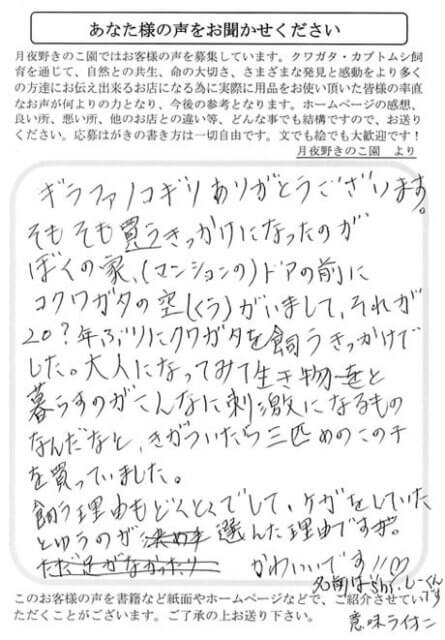 あなた様の声をお聞かせください
月夜野きのこ園ではお客様の声を募集しています。クワガタ・カブトムシ飼
育を通じて、自然との共生、命の大切さ、さまざまな発見と感動をより多く
の方達にお伝え出来るお店になる為に実際に用品をお使い頂いた皆様の率直
なお声が何よりの力となり、今後の参考となります。ホームページの感想、
良い所、悪い所、他のお店との違い等、どんな事でも結構ですので、お送り
ください。応募はがきの書き方は一切自由です。文でも絵でも大歓迎です！
月夜野きのこ園　より
ギラファノコギリありがとうございます。
そもそも買うきっかけになったのが
ぼくの家、(マンションの)ドアの前に
コクワガタの空(くう)がいまして、それが
20?年ぶりにクワガタを飼うきっかけで
した。大人になってみて生き物と
暮らすのがこんなに刺激になるもの
なんだなと、きがついたら三匹めのこの子
を買っていました。
飼う理由もどくとくでして、ケガをしていた
とゆうのが 選んだ理由ですが。
かわいいです!!♡
名前は しーくん
です
意味ライオン
このお客様の声を書籍など紙面やホームページなどで、ご紹介させてい
ただくことがございます。ご了承の上お送り下さい。